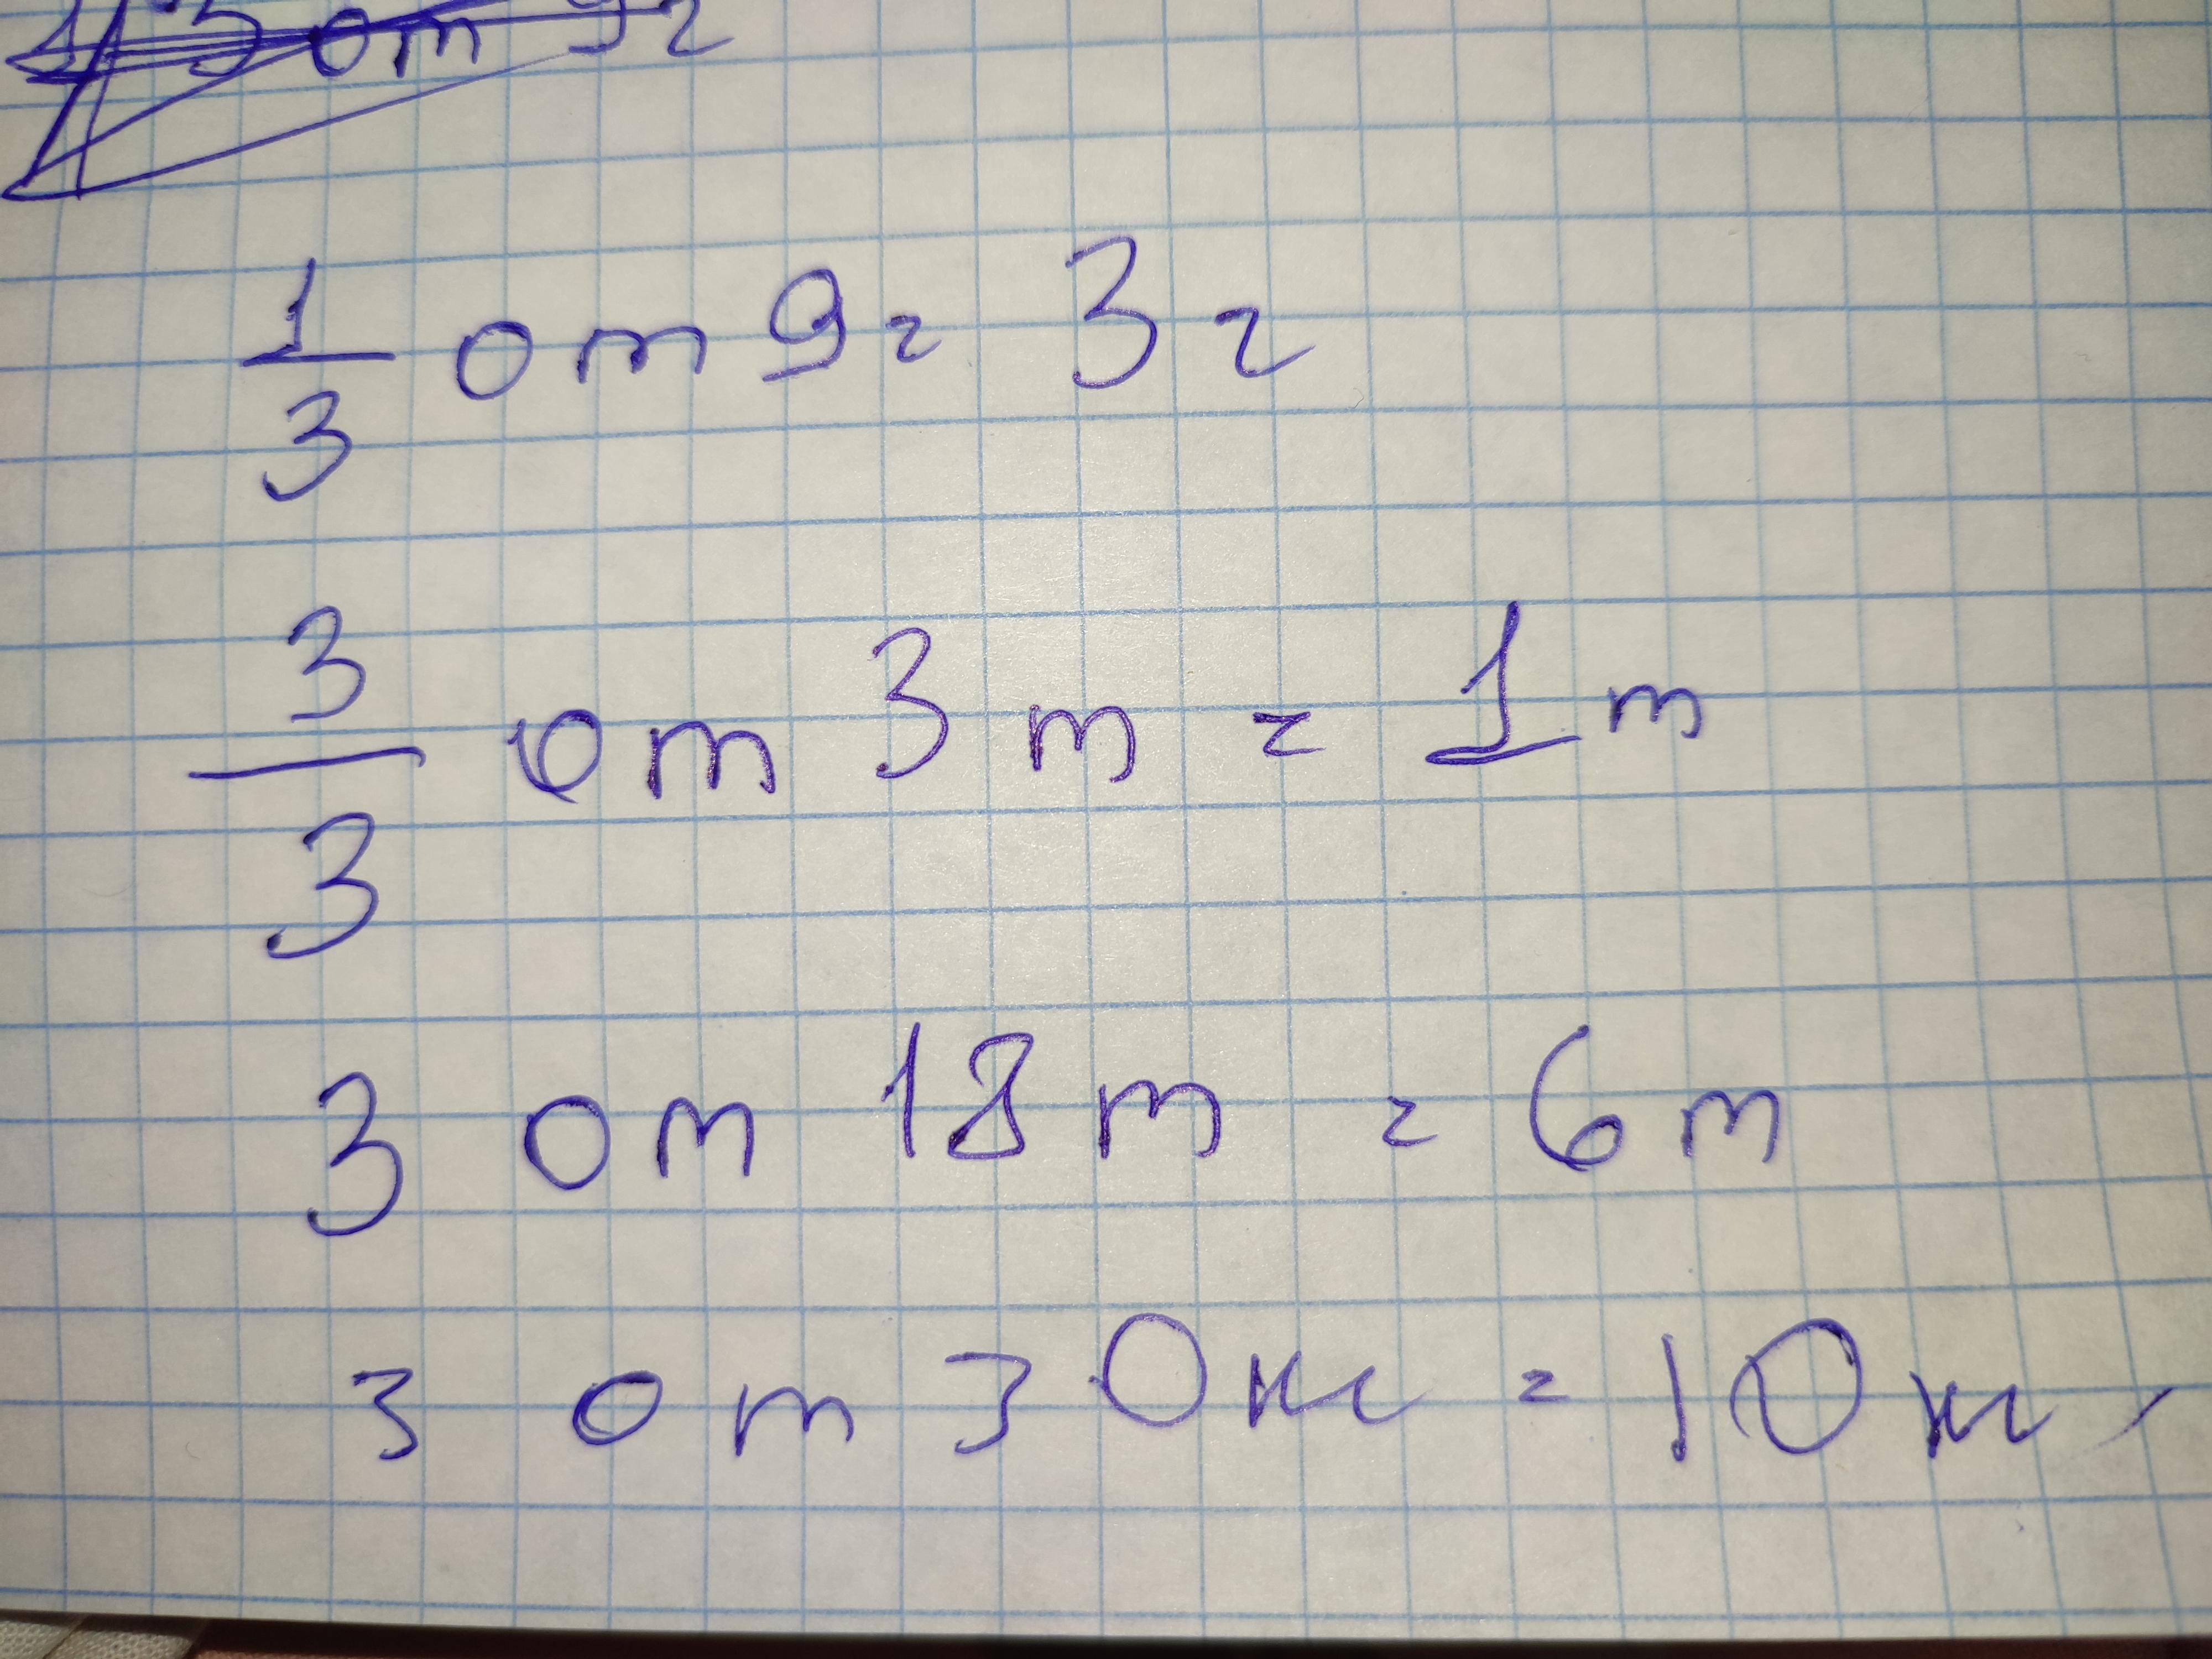 3 от 9г
1/3 от 9г 3г
3/3 от 3 т = 1 т
3 от 18 т = 6 т
3 от 30 кг = 10 кг